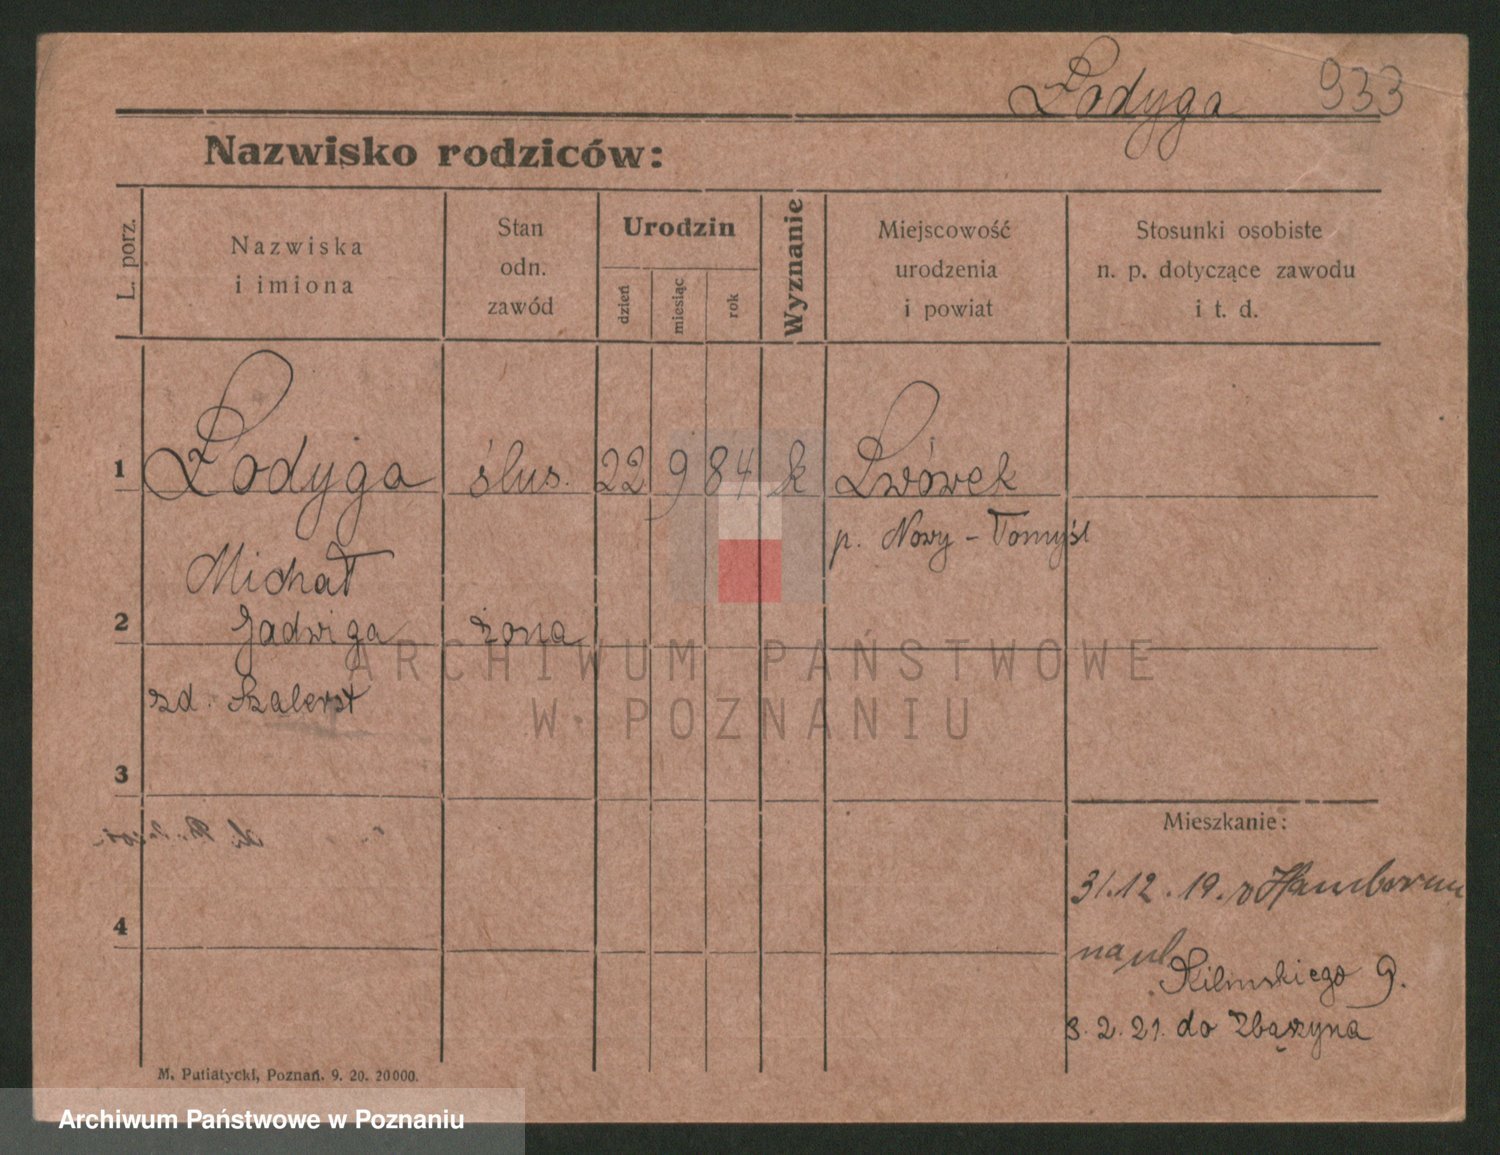 Łodyga 933
Nazwisko rodziców:
L. porz.
Nazwiska
i imiona
Stan
odn.
zawód
Urodzin
dzień
miesiąc
rok
Wyznanie
Miejscowość
urodzenia
i powiat
Stosunki osobiste
n. p. dotyczące zawodu
i t. d.
1 Łodyga ślus. 22 9 84 k Lwówek
p. Nowy-Tomyśl
Michał
2 Jadwiga żona
zd.
3
4
Mieszkanie:
31.12.19. z Hamborna
na ul
Kilińskiego 9.
3.2.21. do Zbąszyna
M. Putiatycki, Poznań. 9. 20. 20000.
ARCHIWUM PAŃSTWOWE
W POZNANIU
Archiwum Państwowe w Poznaniu